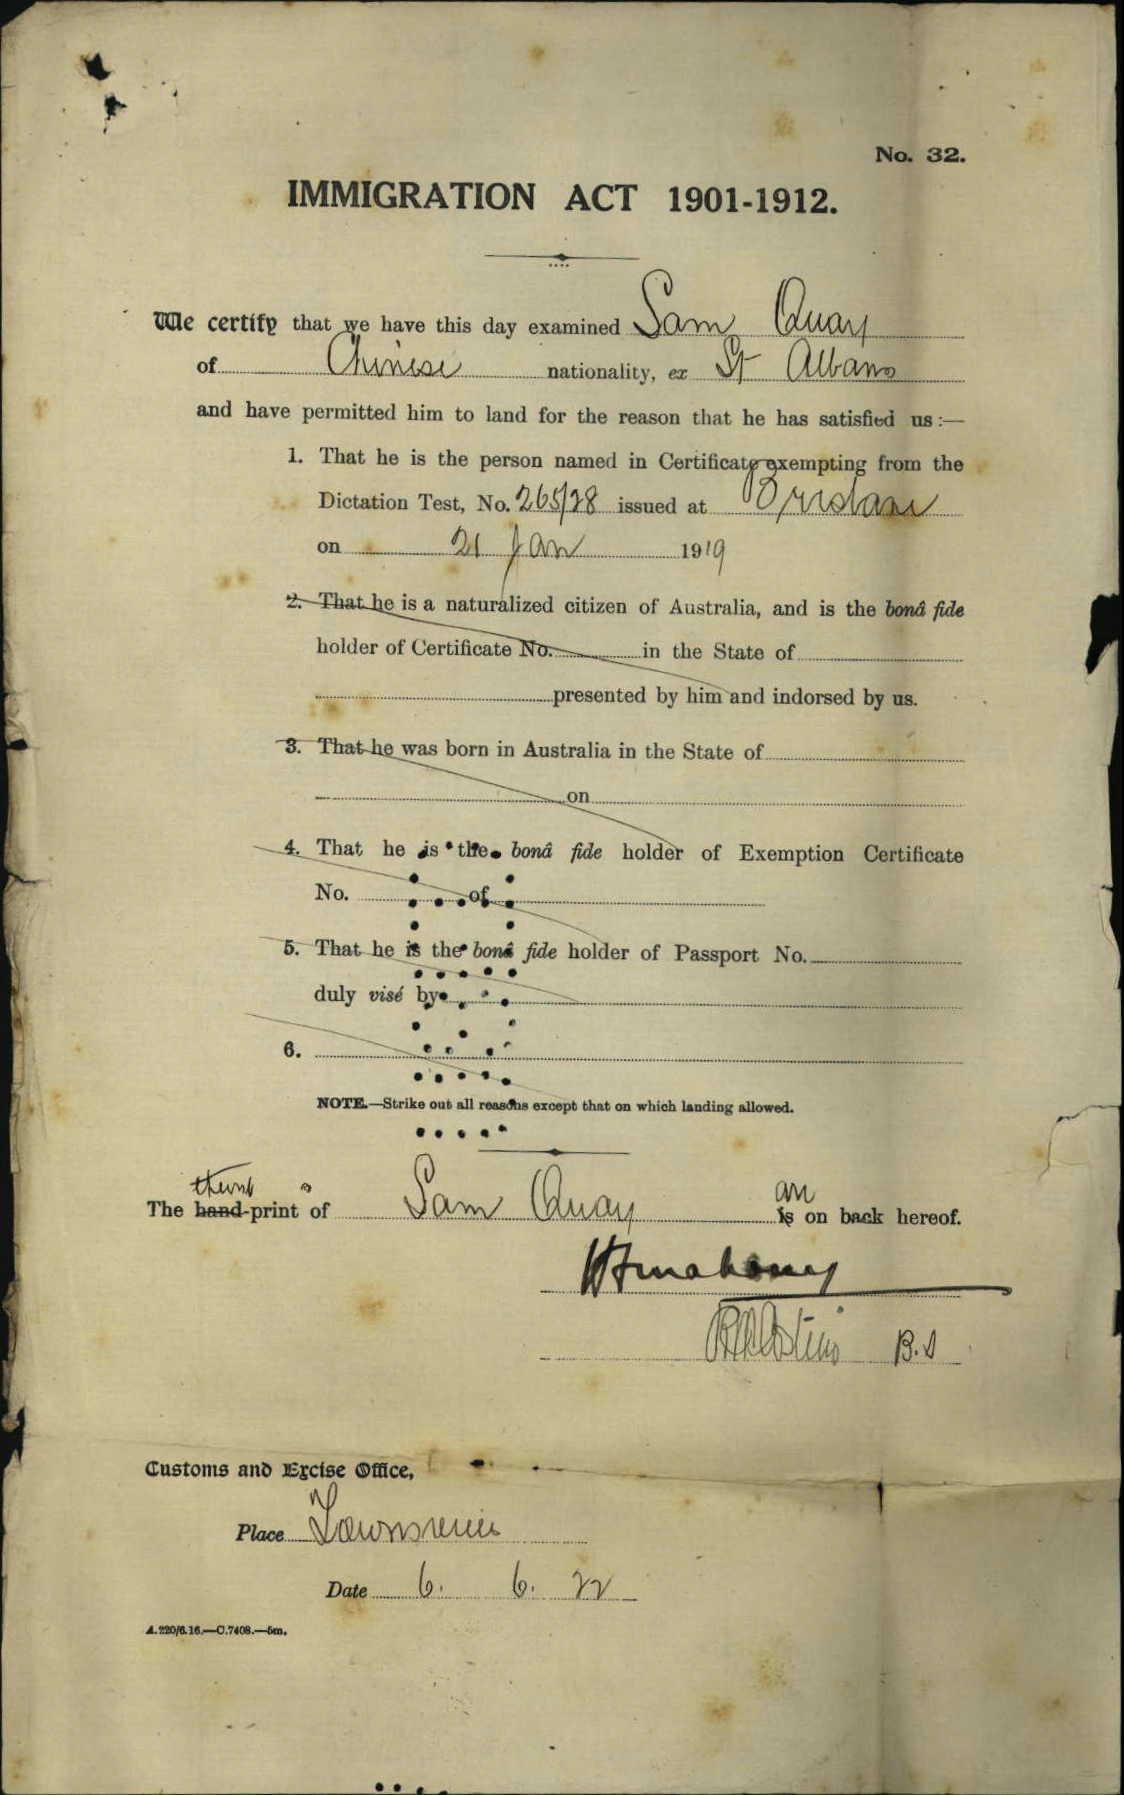 No. 32.
IMMIGRATION ACT 1901-1912.
We certify that we have this day examined Sam Quay
of Chinese nationality, ex St Albans
and have permitted him to land for the reason that he has satisfied us :—
1. That he is the person named in Certificate exempting from the
Dictation Test, No. 265/28 issued at Brisbane
on 21 Jan 1919
2. That he is a naturalized citizen of Australia, and is the bonâ fide
holder of Certificate No. in the State of
presented by him and indorsed by us.
3. That he was born in Australia in the State of
on
4. That he is the bonâ fide holder of Exemption Certificate
No. of
5. That he is the bonâ fide holder of Passport No.
duly visé by
6.
NOTE.—Strike out all reasons except that on which landing allowed.
thumb s an
The hand-print of Sam Quay is on back hereof.
B.S
Customs and Excise Office,
Place Townsville
Date 6. 6. 22
A.220/6.16.—C.7408.—5m.